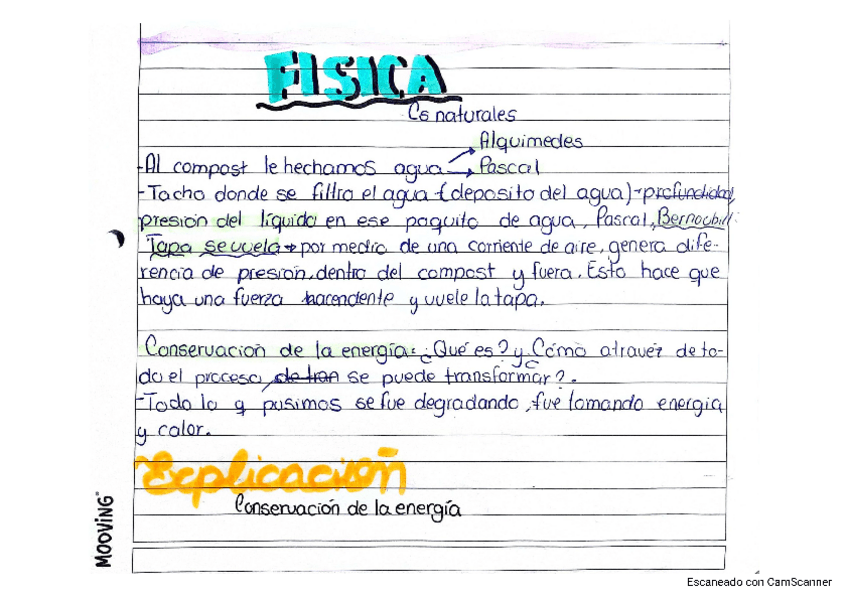 FISICA
Cs naturales
Alquimedes
-Al compost le hechamos agua → Pascal
-Tacho donde se filtro el agua (deposito del agua)→profundidad,
presion del líquido en ese poquito de agua, Pascal, Bernoubili.
Tapa se vuela → por medio de una corriente de aire, genera dife-
rencia de presion, dentro del compost y fuera. Esto hace que
haya una fuerza hacendente y vuele la tapa.
Conservacion de la energía: ¿Qué es? y ¿Cómo atravez de to-
do el proceso, de tran se puede transformar?.
-Todo lo q pusimos se fue degradando, fue tomando energia
y calor.
Explicación
Conservación de la energía
MOOVING
Escaneado con CamScanner